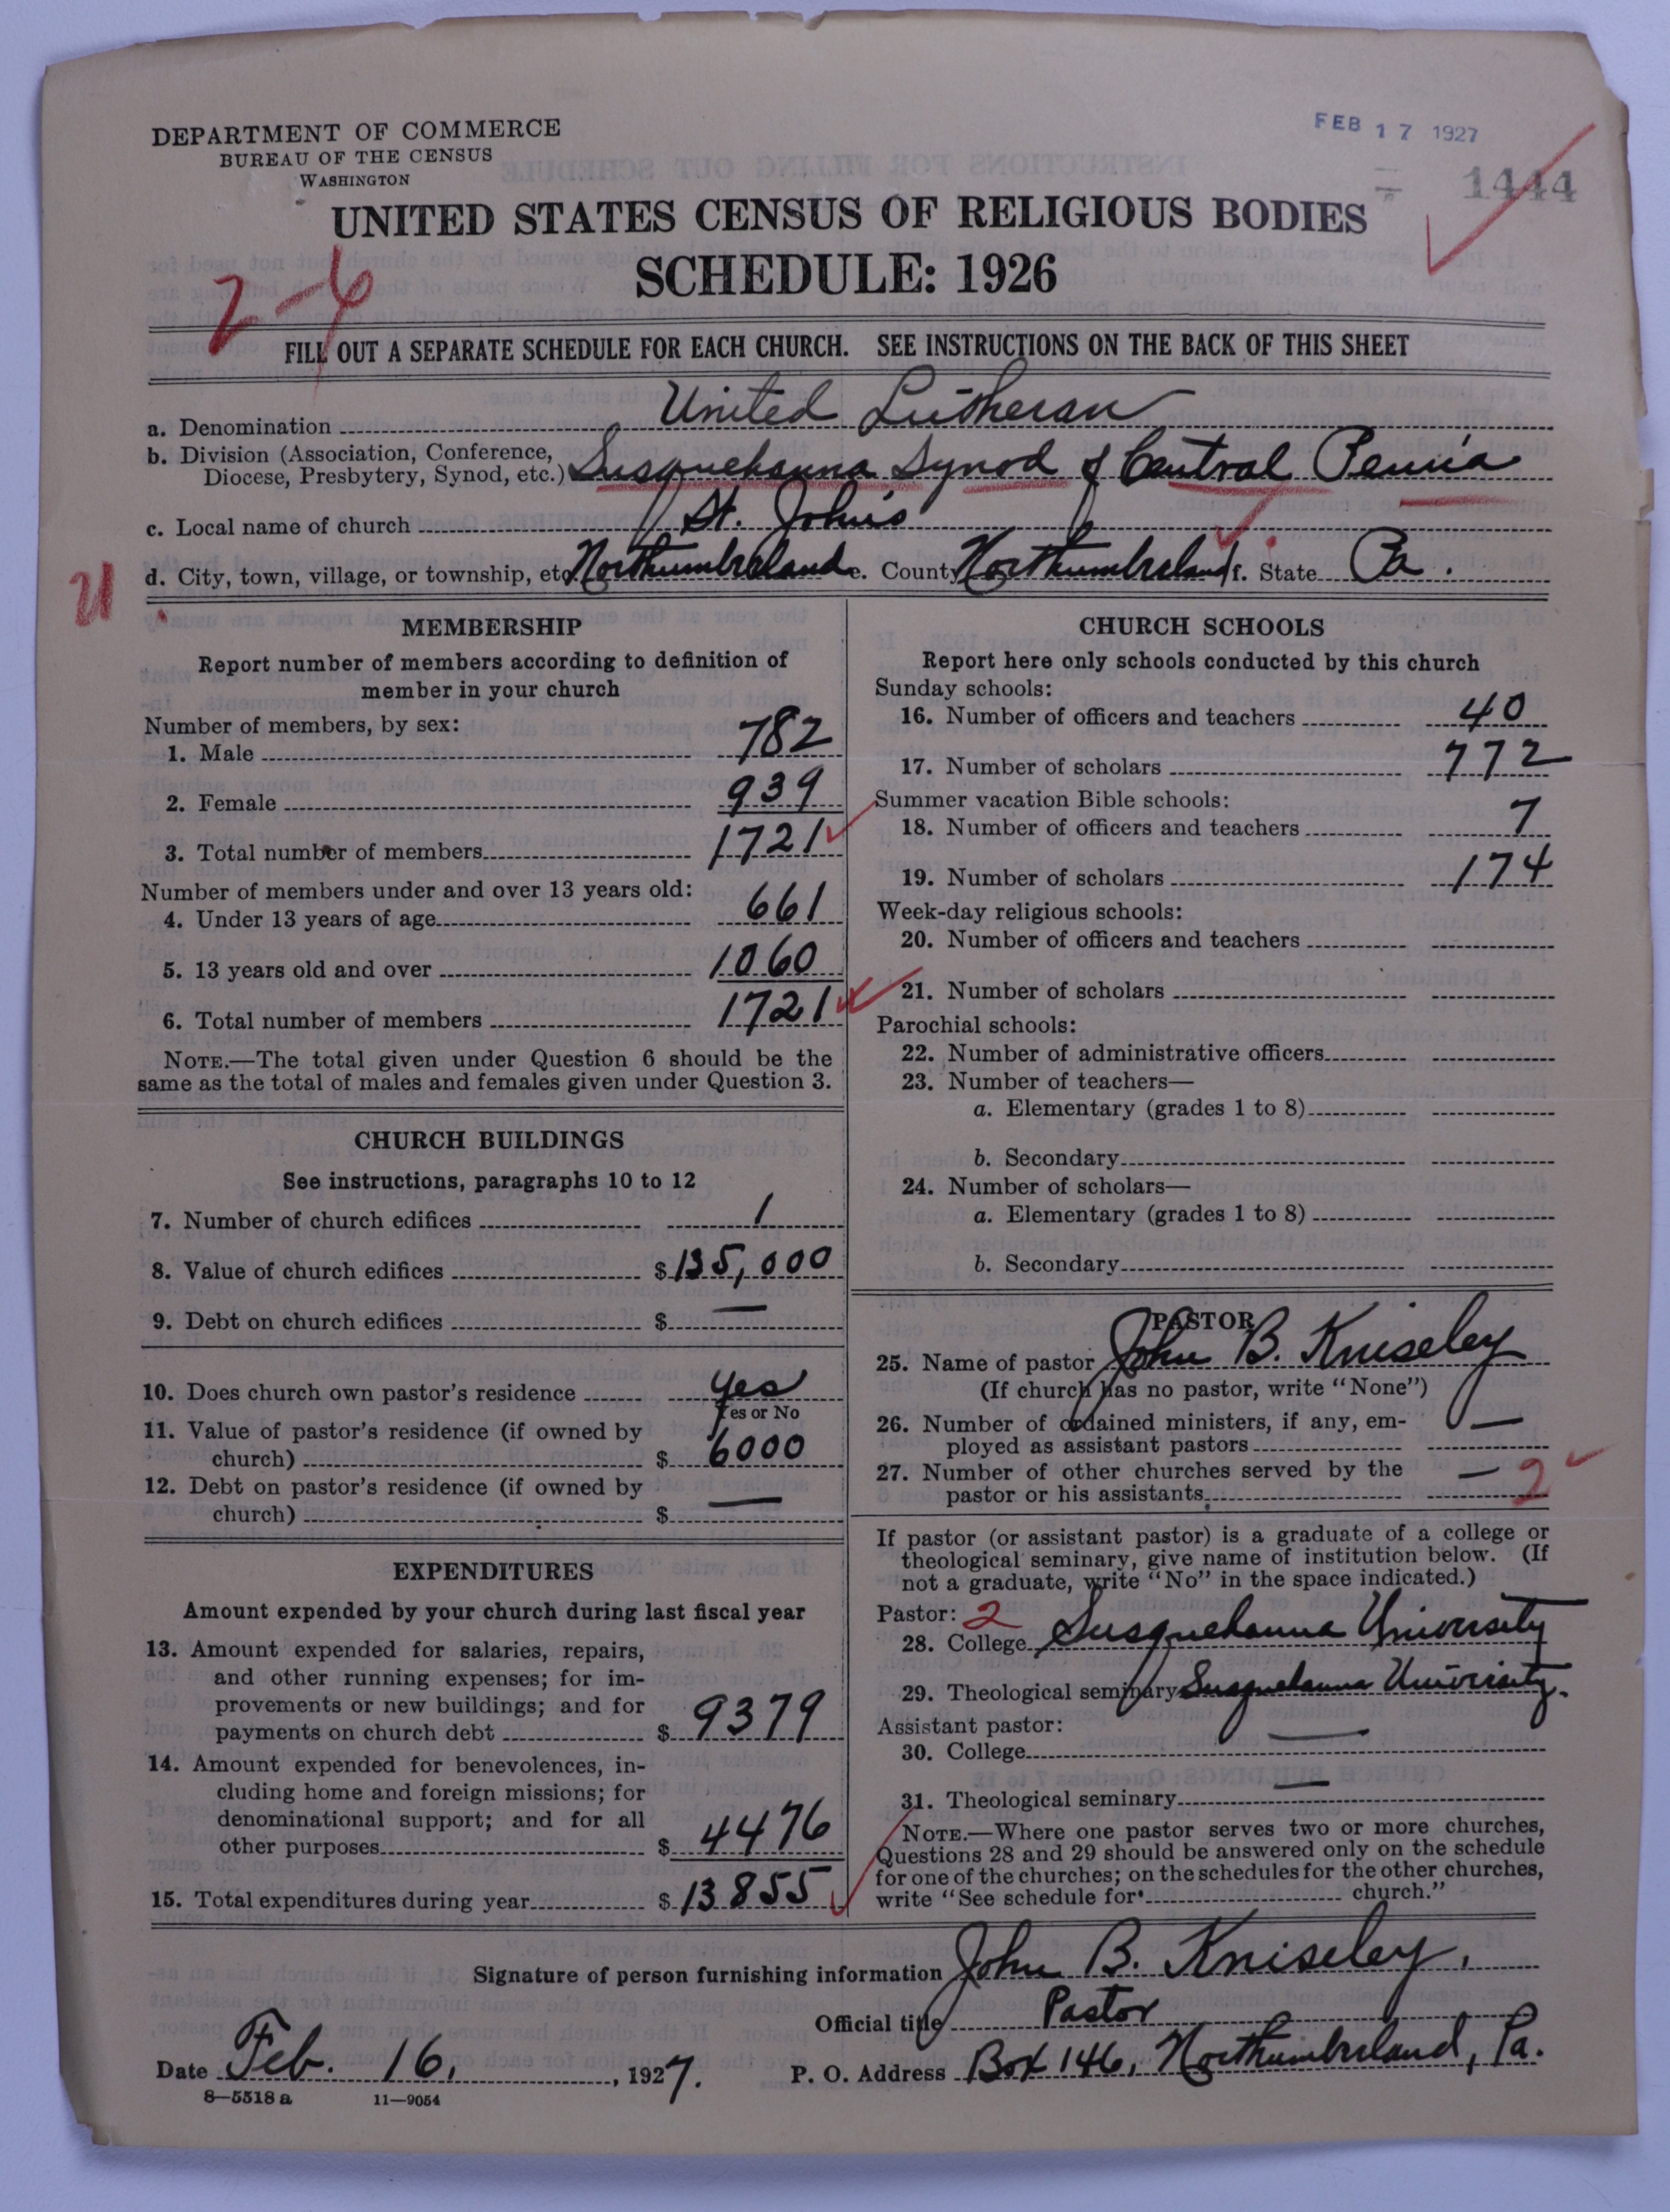 DEPARTMENT OF COMMERCE
BUREAU OF THE CENSUS
WASHINGTON
FEB 17 1927
1444
UNITED STATES CENSUS OF RELIGIOUS BODIES
SCHEDULE: 1926
2-6
FILL OUT A SEPARATE SCHEDULE FOR EACH CHURCH. SEE INSTRUCTIONS ON THE BACK OF THIS SHEET
a. Denomination United Lutheran
b. Division (Association, Conference,
Diocese, Presbytery, Synod, etc.) Susquehanna Synod of Central Penn'a
c. Local name of church St. John's
d. City, town, village, or township, etc. Northumberland e. County Northumberland f. State Pa.
MEMBERSHIP
Report number of members according to definition of
member in your church
Number of members, by sex:
1. Male 782
2. Female 939
3. Total number of members 1721
Number of members under and over 13 years old:
4. Under 13 years of age 661
5. 13 years old and over 1060
6. Total number of members 1721
NOTE.—The total given under Question 6 should be the
same as the total of males and females given under Question 3.
CHURCH BUILDINGS
See instructions, paragraphs 10 to 12
7. Number of church edifices 1
8. Value of church edifices $ 135,000
9. Debt on church edifices $ —
10. Does church own pastor's residence yes
Yes or No
11. Value of pastor's residence (if owned by
church) $ 6000
12. Debt on pastor's residence (if owned by
church) $ —
EXPENDITURES
Amount expended by your church during last fiscal year
13. Amount expended for salaries, repairs,
and other running expenses; for im-
provements or new buildings; and for
payments on church debt $ 9379
14. Amount expended for benevolences, in-
cluding home and foreign missions; for
denominational support; and for all
other purposes $ 4476
15. Total expenditures during year $ 13855
CHURCH SCHOOLS
Report here only schools conducted by this church
Sunday schools:
16. Number of officers and teachers 40
17. Number of scholars 772
Summer vacation Bible schools:
18. Number of officers and teachers 7
19. Number of scholars 174
Week-day religious schools:
20. Number of officers and teachers
21. Number of scholars
Parochial schools:
22. Number of administrative officers
23. Number of teachers—
a. Elementary (grades 1 to 8)
b. Secondary
24. Number of scholars—
a. Elementary (grades 1 to 8)
b. Secondary
PASTOR
25. Name of pastor John B. Kniseley
(If church has no pastor, write "None")
26. Number of ordained ministers, if any, em-
ployed as assistant pastors —
27. Number of other churches served by the
pastor or his assistants — 2
If pastor (or assistant pastor) is a graduate of a college or
theological seminary, give name of institution below. (If
not a graduate, write "No" in the space indicated.)
Pastor: 2
28. College Susquehanna University
29. Theological seminary Susquehanna University.
Assistant pastor:
30. College —
31. Theological seminary —
NOTE.—Where one pastor serves two or more churches,
Questions 28 and 29 should be answered only on the schedule
for one of the churches; on the schedules for the other churches,
write "See schedule for church."
Signature of person furnishing information John B. Kniseley.
Official title Pastor
Date Feb. 16, 1927. P. O. Address Box 146, Northumberland, Pa.
8—5518 a 11—9054